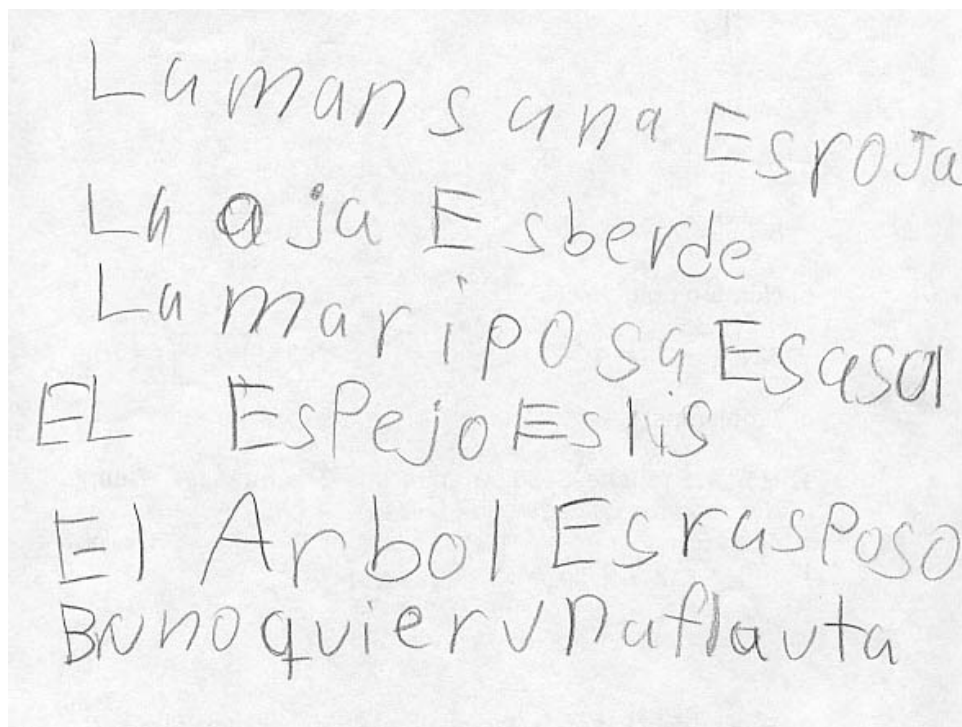 La mansana Esroja
La oja Esberde
La mariposa Esasal
EL EsPejo Eslis
El Arbol EsrasPoso
Bruno quier una flauta